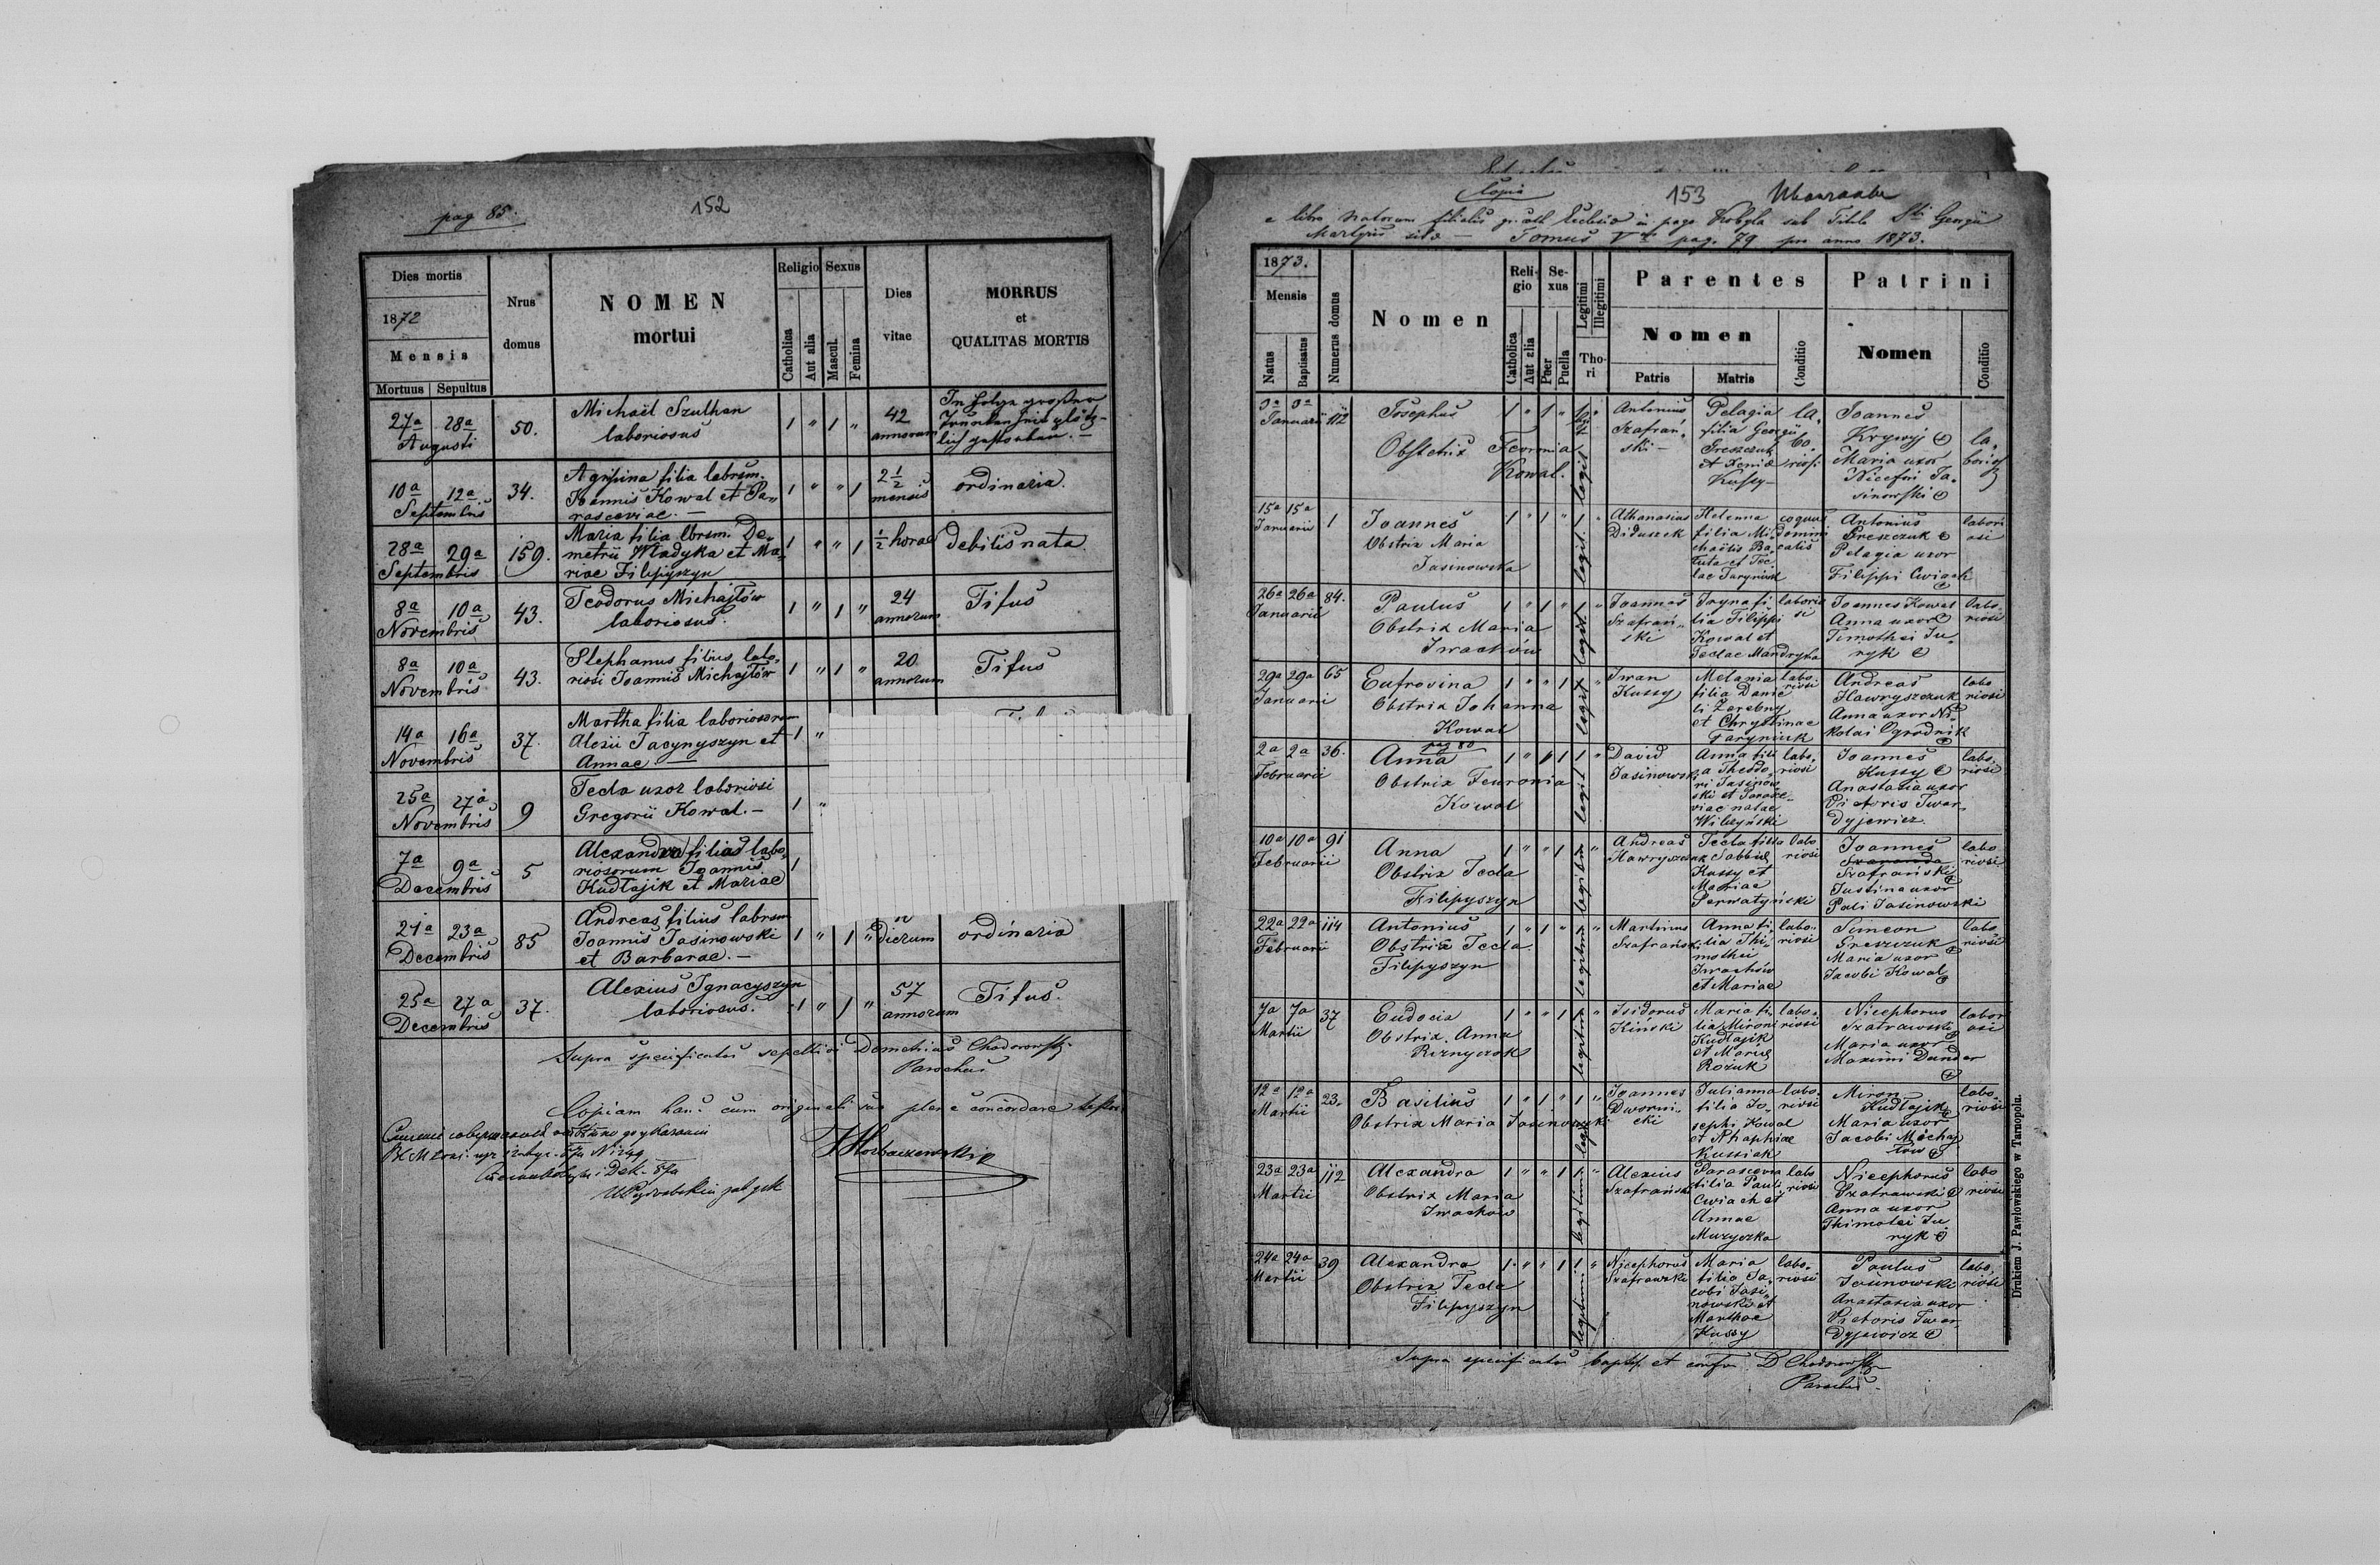 pag 85.
152
Dies mortis
1872
Mensis
Mortuus Sepultus
Nrus
domus
NOMEN
mortui
Religio Sexus
Catholica
Aut alia
Mascul.
Femina
Dies
vitae
MORRUS
et
QUALITAS MORTIS
27a 28a
Augusti
50.
Michaël Szulhan
laboriosus
1 " 1 "
42
annorum
10a 12a
Septembris
34.
Agripina filia labrsm.
Ioannis Kowal et Pa„
rasceviae. —
1 " " 1
2 1/2
mensis
ordinaria.
28a 29a
Septembris
159.
Maria filia lbrsm. De„
metrii Wladyka et Ma„
riae Filipyszyn
1 " " 1
1/2 horae
debilis nata.
8a 10a
Novembris
43.
Teodorus Michajłów
laboriosus.
1 " 1 "
24
annorum
Tifus
8a 10a
Novembris
43.
Stephanus filius labo„
riosi Joannis Michajłów
1 " 1 "
20
annorum
Tifus
14a 16a
Novembris
37.
Martha filia laboriosorum
Alexii Jacynyszyn et
Annae.
1 "
25a 27a
Novembris
9
Tecla uxor laboriosi
Gregorii Kowal. —
1 "
7a 9a
Decembris
5
Alexandra filia labo„
riosorum Joannis
Kudłajik et Mariae
1
21a 23a
Decembris
85
Andreas filius labrsm
Joannis Jasinowski
et Barbarae. —
1 " 1 "
dierum
ordinaria
25a 27a
Decembris
37.
Alexius Ignacyszyn
laboriosus.
1 " 1 "
57
annorum
Tifus.
Supra specificatos sepelivi Demetrius Chodorowski
Parochus
Copiam hanc cum originali suo plene concordare testor
Copia
153
e libro Natorum filialis gr. cath Ecclesiæ in pago Kobyla sub Titulo Sti Georgii
Martyris sitæ — Tomus V pag. 79 pro anno 1873.
1873.
Mensis
Natus
Baptisatus
Numerus domus
Nomen
Reli-
gio
Catholica
Aut alia
Se-
xus
Puer
Puella
Legitimi
Illegitimi
Tho-
ri
Parentes
Nomen
Patris
Matris
Conditio
Patrini
Nomen
Conditio
Januarii
112
Josephus
Obstetrix Fevronia
Kowal.
1 " 1 "
Antonius
Szafrań„
ski —
Pelagia
filia Georgii
Greszczuk
et Xeniæ
Kussy —
la„
bo„
riosi
Joannes
Krywyj
Maria uxor
Nicefori Ja„
sinowski
la„
boriosi
15a 15a
Januarii
1
Joannes
Obstrix Maria
Jasinowska
1 " 1 " 1 "
Athanasius
Diduszek
Helenna
filia Mi„
chaëlis Ba„
luta et Tec„
lae Taryniuk
coquus
domini„
calis
Antonius
Greszczuk
Pelagia uxor
Filippi Cwiach
labori
osi
26a 26a
Januarii
84.
Paulus
Obstrix Maria
Iwachów
1 " 1 " 1 "
Joannes
Szafrań„
ski
Iryna fi„
lia Filippi
Kowal et
Teclae Mandryha
laborio
si
Joannes Kowal
Anna uxor
Timothei Ju„
ryk
labo„
riosi
29a 29a
Januarii
65
Eufrovina
Obstrix Johanna
Kowal
1 " " 1 1 "
Iwan
Kussy
Melania
filia Danie„
li Zarebny
et Chrystinae
Taryniuk
labo„
riosi
Andreas
Hawryszczuk
Anna uxor Ni„
kolai Ogrodnik
labo
riosi
2a 2a
Februarii
36.
pag 80
Anna
Obstrix Feuronia
Kowal
David
Jasinowski
Anna fili„
a Theodo„
ri Jasinow„
ski et Parasce„
viae natae
Wilczyński
labo„
riosi
Joannes
Kussy
Anastasia uxor
Victoris Twar„
dyjewicz
labo„
riosi
10a 10a
Februarii
91
Anna
Obstrix Tecla
Filipyszyn
1 " " 1
Andreas
Hawryszczuk
Tecla filia
Sabbæ
Kussy et
Mariae
Permatyński
labo
riosi
Joannes
Szafrański
Justina uxor
Pauli Jasinowski
labo
riosi
22a 22a
Februarii
114
Antonius
Obstrix Tecla
Filipyszyn
1 " 1 "
Martinus
Szafrański
Anna fi„
lia Thi„
mothei
Iwachów
et Mariae
labo„
riosi
Simeon
Greszczuk
Maria uxor
Jacobi Kowal
labo
riosi
7a 7a
Martii
37
Eudocia
Obstrix Anna
Reznyczok
1 " " 1
Isidorus
Kiński
Maria fi„
lia Mironi
Kudłajik
et Mariæ
Rożuk
labo„
riosi
Nicephorus
Szafrawski
Maria uxor
Maximi Dunder
labori
osi
12a 12a
Martii
23.
Basilius
Obstrix Maria Jasinowski
1 " 1 " 1 "
Joannes
Dworni„
cki
Julianna
filia Jo„
sephi Kowal
et Aphaphiae
Kussiak
labo„
riosi
Miron
Kudłajik
Maria uxor
Jacobi Michaj
łow
labo„
riosi
23a 23a
Martii
112
Alexandra
Obstrix Maria
Iwachow
1 " " 1 1 "
Alexius
Szafrański
Parascevia
filia Pauli
Cwiach et
Annae
Muzyczka
labo
riosi
Nicephorus
Szafrawski
Anna uxor
Thimotei Ju„
ryk
labo
riosi
24a 24a
Martii
39
Alexandra
Obstrix Tecla
Filipyszyn
1 " " 1 1 "
Nicephorus
Szafrawski
Maria
filia Ja„
cobi Jasi„
nowski et
Marthae
Kussy
labo„
riosi
Paulus
Jasinowski
Anastasia uxor
Victoris Twar„
dyjewicz
labo„
riosi
Supra specificatos baptis. et confir. D Chodorowski
Parochus.
Drukiem J. Pawłowskiego w Tarnopolu.